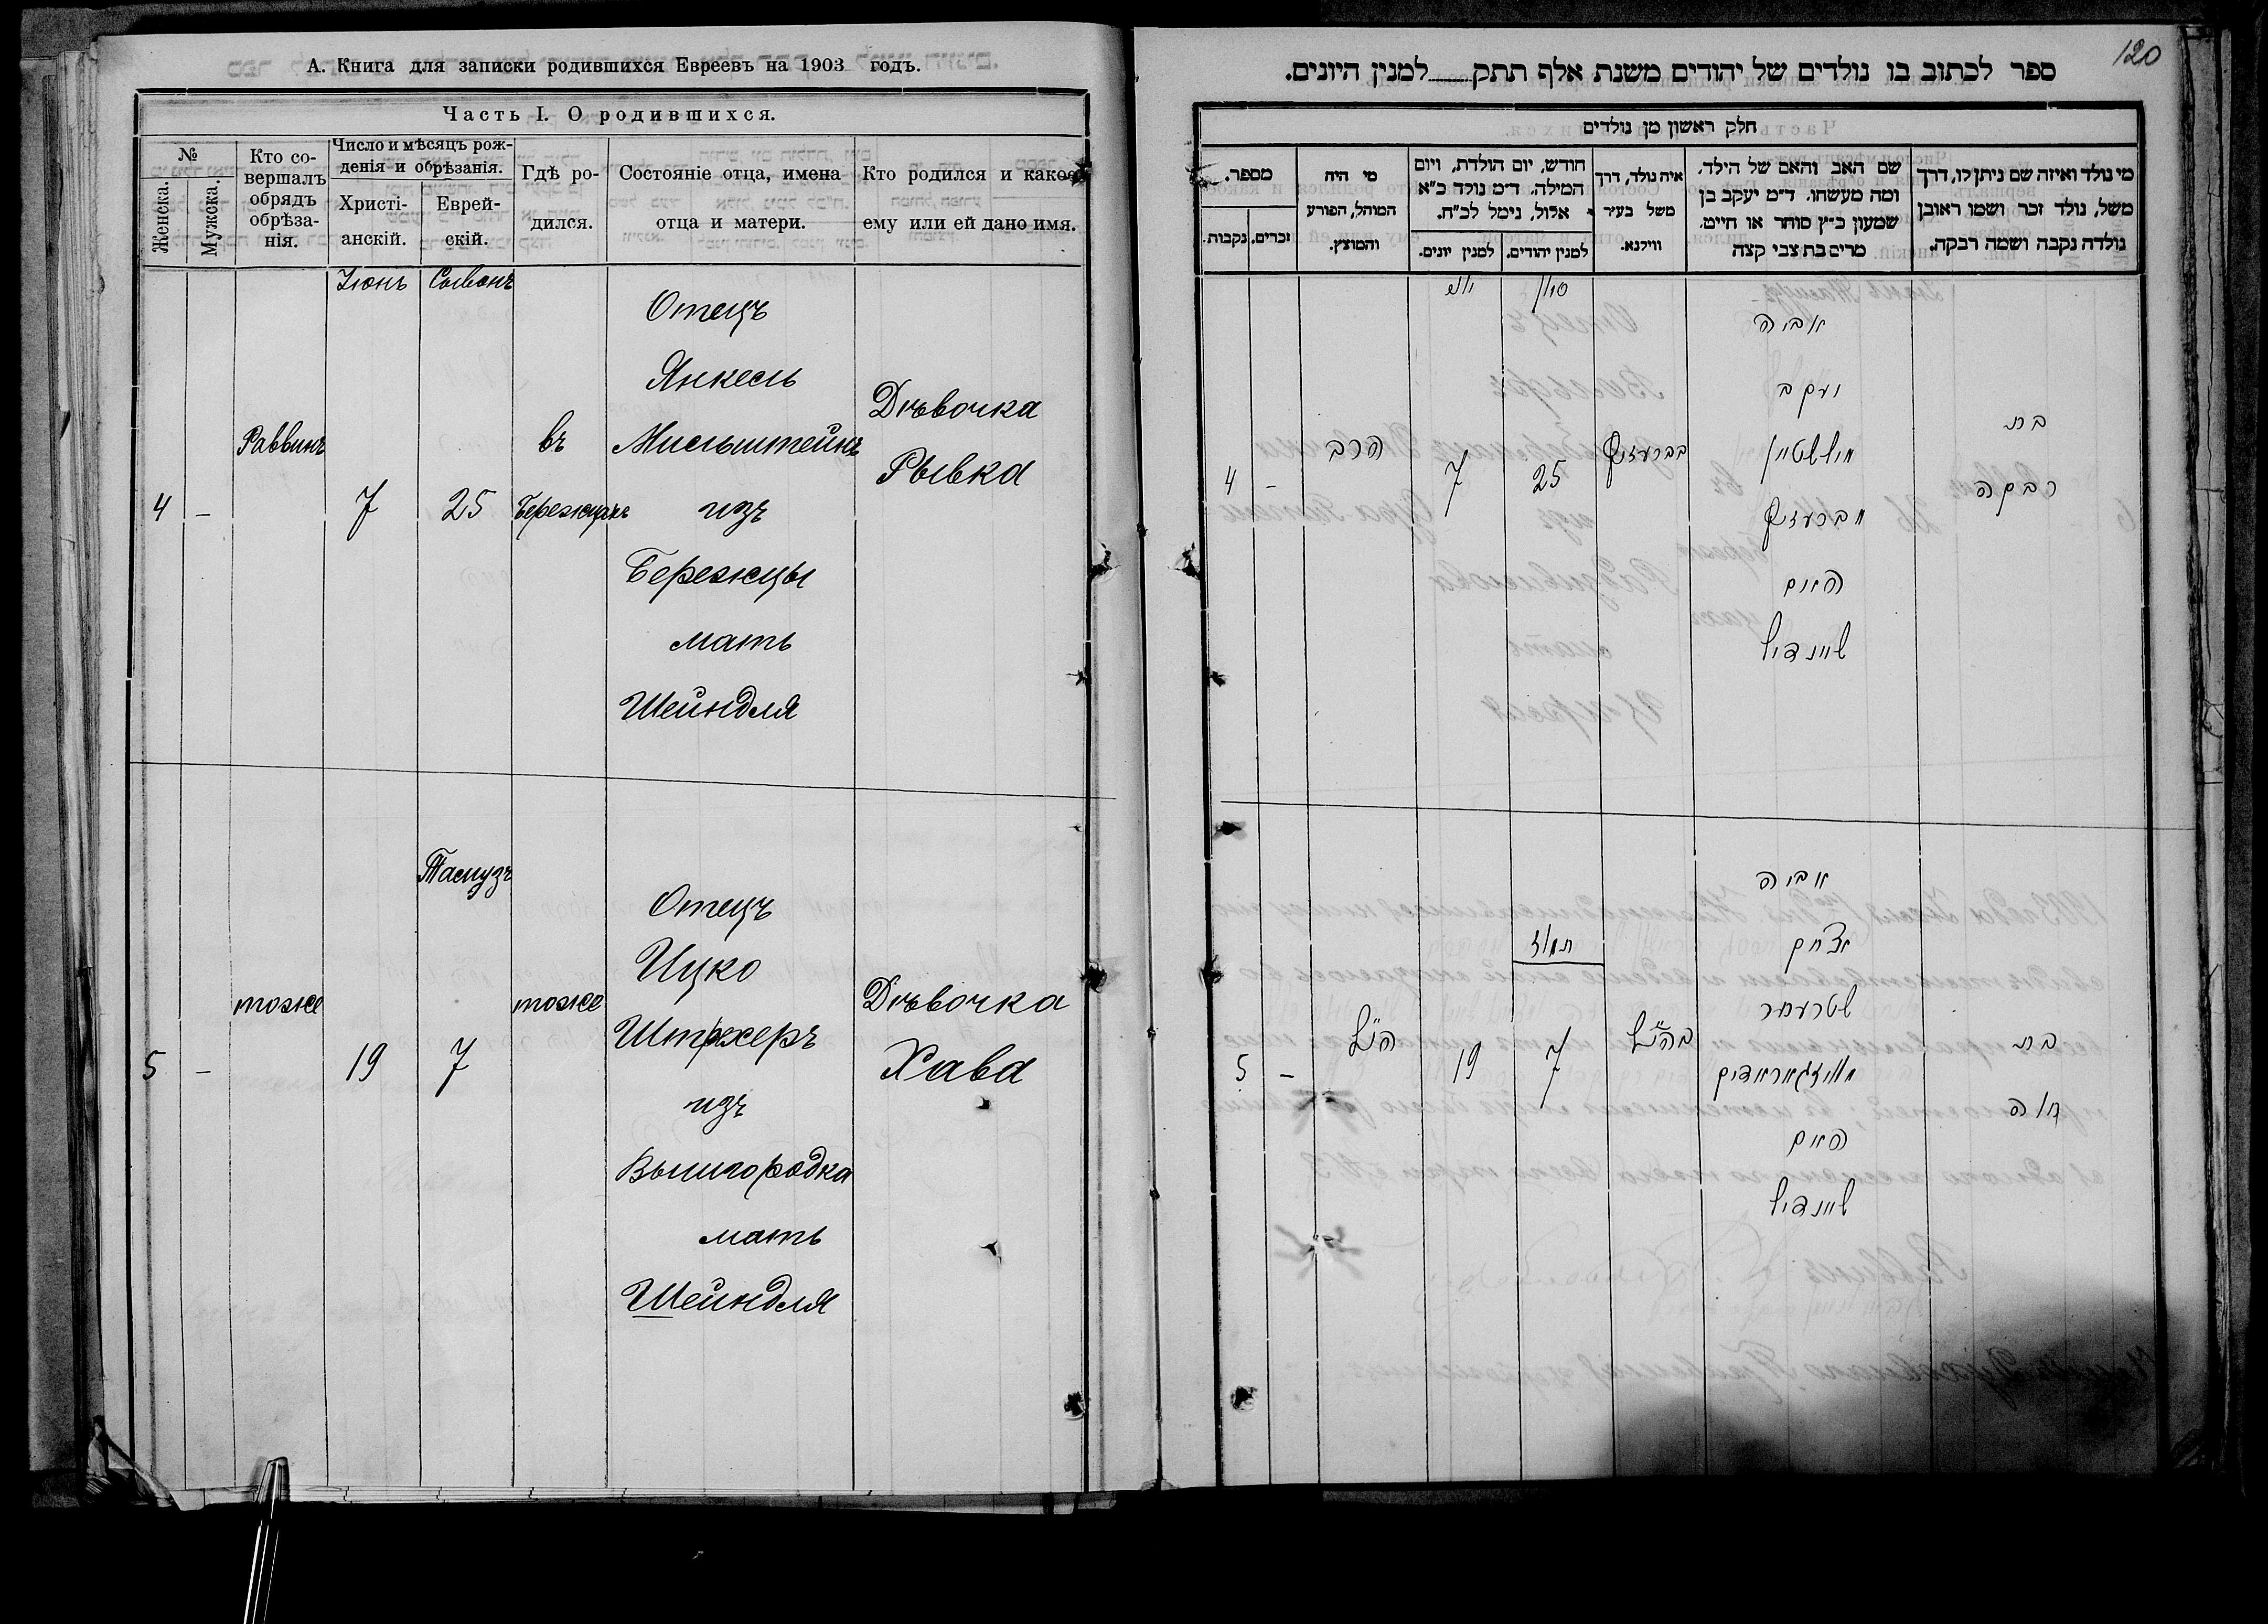 А. Книга для записки родившихся Евреевъ на 1903 годъ.
Часть I. О родившихся.
№
Женска.
Мужска.
Кто со-
вершалъ
обрядъ
обрѣза-
нія.
Число и мѣсяцъ рож-
денія и обрѣзанія.
Христі-
анскій.
Еврей-
скій.
Гдѣ ро-
дился.
Состояніе отца, имена
отца и матери.
Кто родился и какое
ему или ей дано имя.
4
-
Раввинъ
Іюнь
7
Сыванъ
25
въ
Бережцахъ
Отецъ
Янкель
Мильштейнъ
изъ
Бережцы
мать
Шейндля
Дѣвочка
Рывка
5
-
тоже
19
Тамузъ
7
тоже
Отецъ
Ицко
изъ
Вышгородка
мать
Шейндля
Дѣвочка
Хава
120
ספר לכתוב בו נולדים של יהודים משנת אלף תתק למנין היונים.
חלק ראשון מן נולדים
מי נולד ואיזה שם ניתן לו, דרך
משל, נולד זכר ושמו ראובן
נולדה נקבה ושמה רבקה.
שם האב והאם של הילד.
ומה מעשהו. ד״מ יעקב בן
שמעון כ״ץ סוחר או חייט.
מרים בת צבי קצה
איה נולד, דרך
משל בעיר
ווילנא.
חודש, יום הולדת, ויום
המילה. ד״מ נולד כ״א
אלול, נימל לכ״ח.
למנין יהודים.
למנין יונים.
מי היה
המוהל, הפורע
והמוצץ.
מספר.
זכרים.
נקבות.
בת
רבקה
אביה
יעקב
מילשטיין
האם
שיינדיל
סיון
25
יוני
7
הרב
-
4
בת
חוה
אביה
יצחק
האם
שיינדיל
תמוז
7
19
הנ״ל
-
5